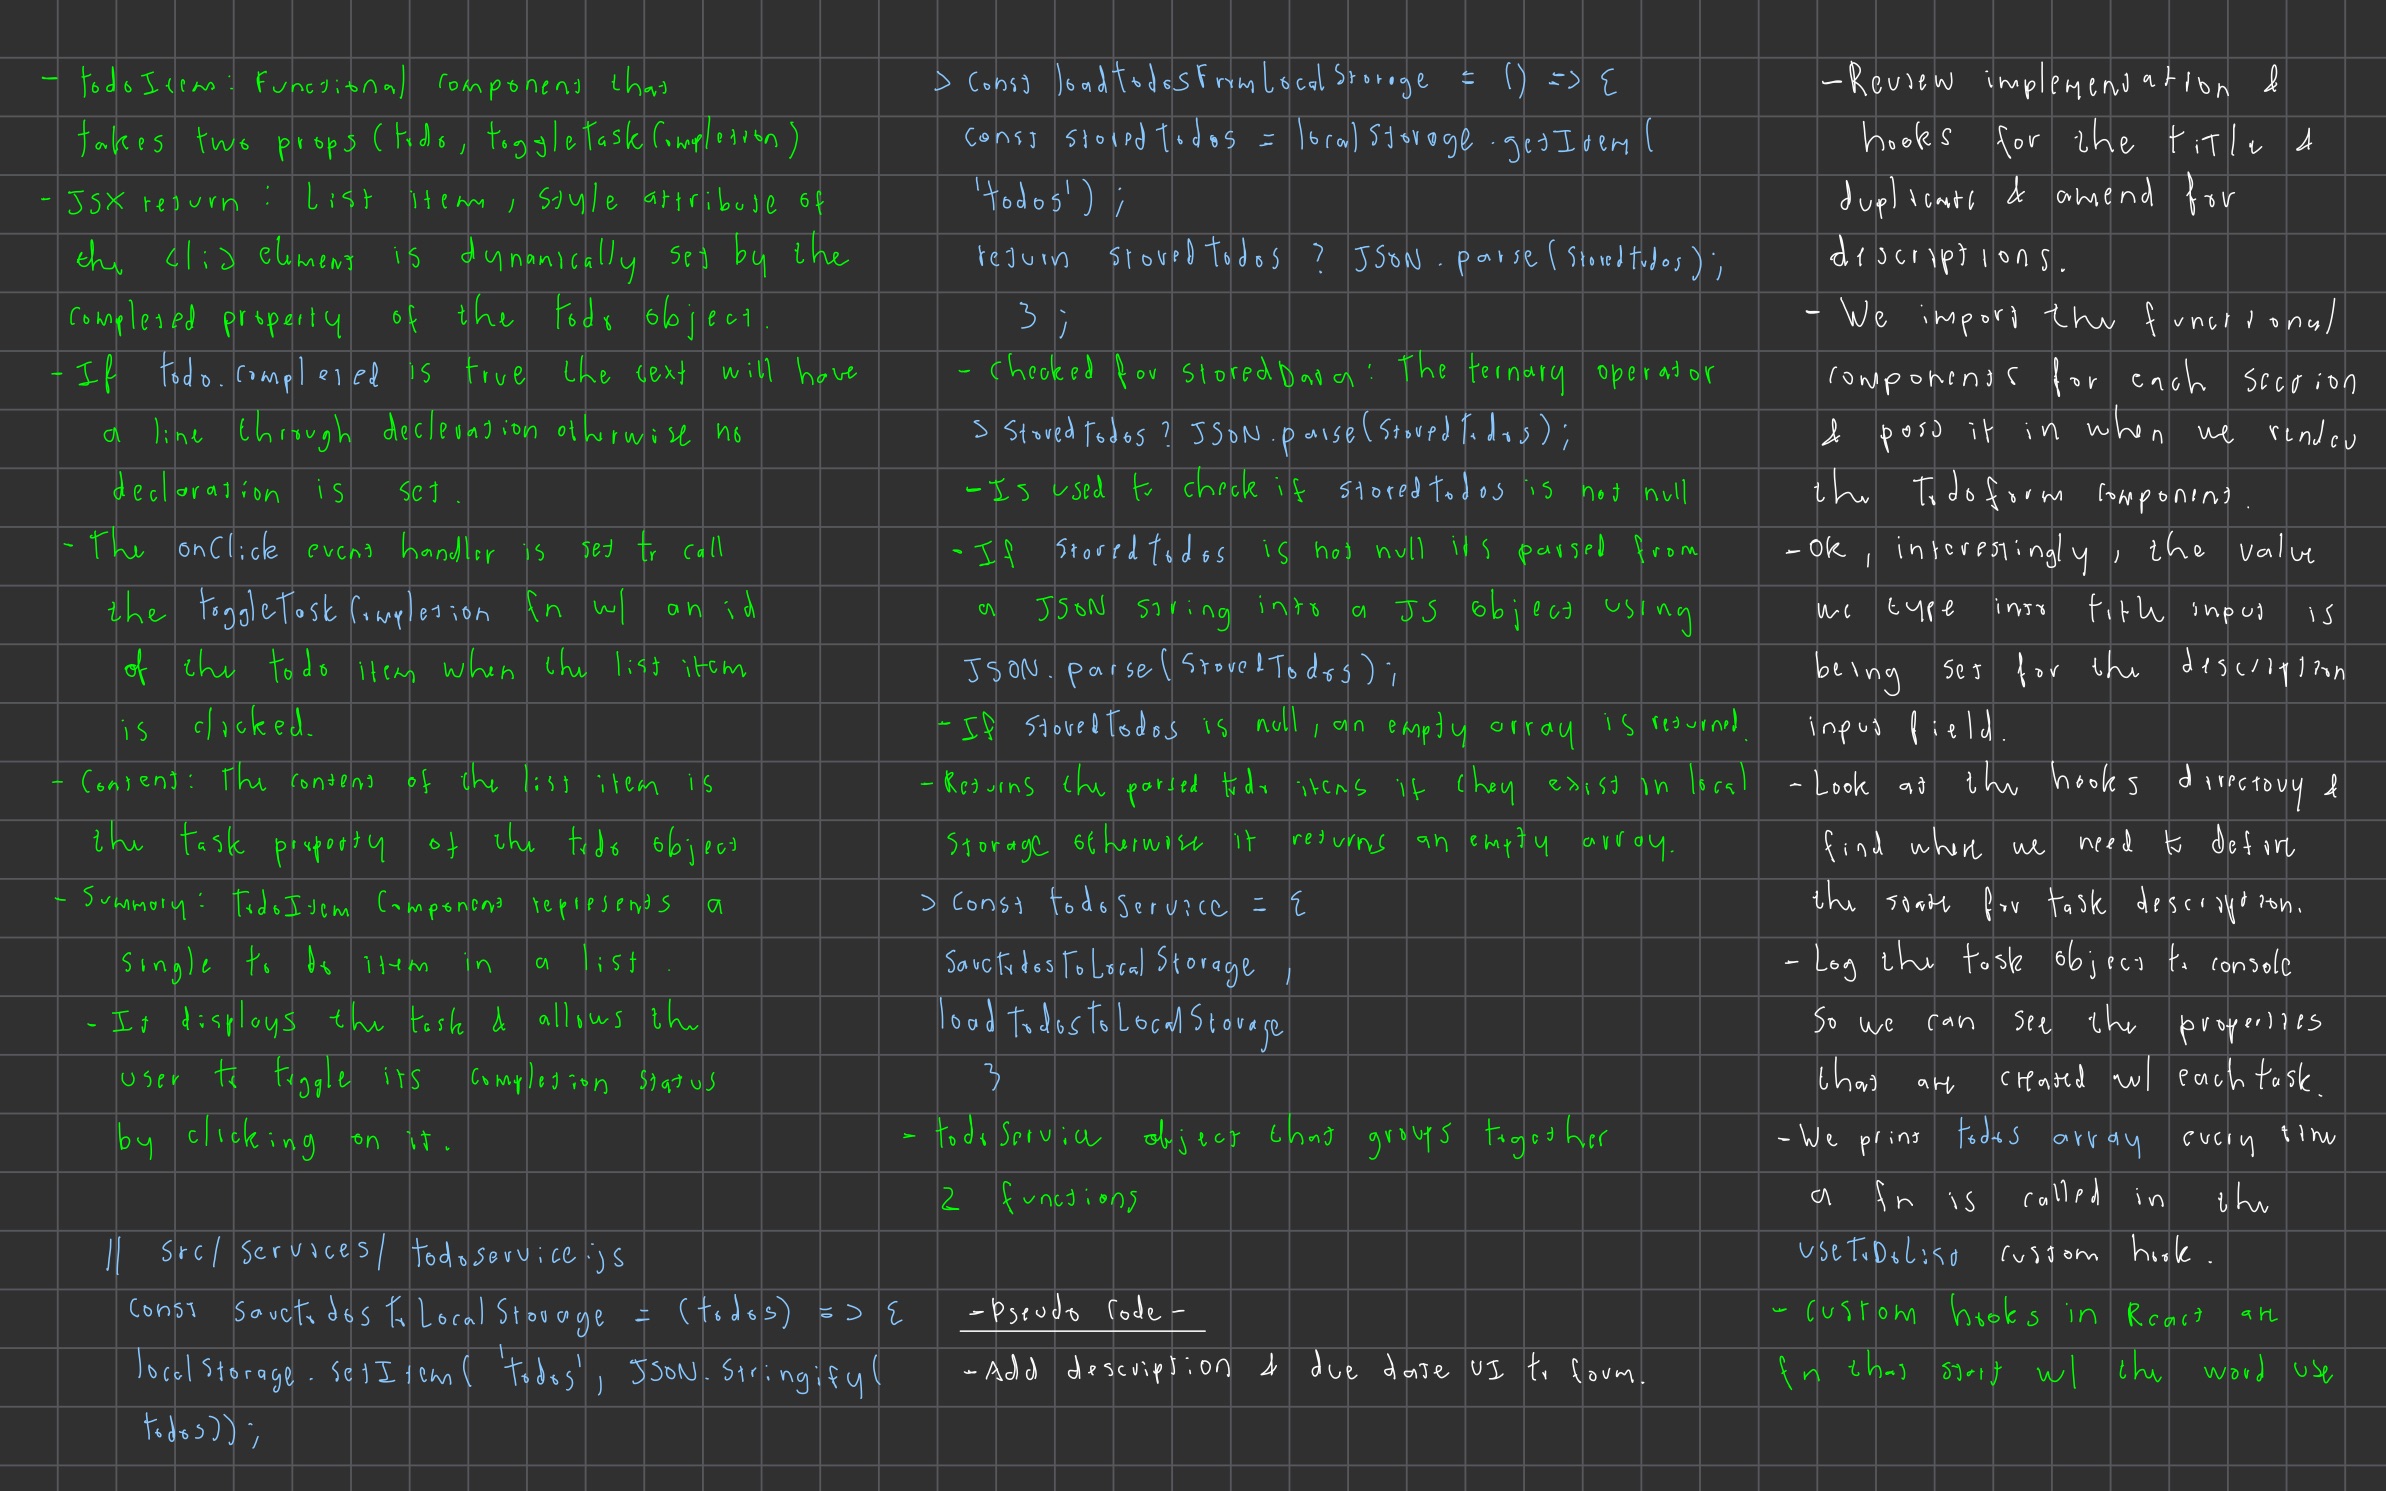 - todoItem: Functional component that
takes two props (todo, toggleTaskCompletion)
- JSX return : List item, style attribute of
the <li> element is dynamically set by the
completed property of the todo object.
- If todo.completed is true the text will have
a line through decleration otherwise no
declaration is set.
- The onClick event handler is set to call
the toggleTaskCompletion fn w/ an id
of the todo item when the list item
is clicked.
- Content: The content of the list item is
the task property of the todo object
- Summary: TodoItem Component represents a
single to do item in a list.
- It displays the task & allows the
user to toggle its completion status
by clicking on it.
// src/services/todoservice.js
const saveTodosToLocalStorage = (todos) => {
localStorage.setItem( 'todos', JSON.stringify(
todos));
> const loadTodosFromLocalStorage = () => {
const storedTodos = localStorage.getItem(
'todos');
return storedTodos ? JSON.parse(storedTodos);
};
- Checked for storedData: The ternary operator
> storedTodos ? JSON.parse(storedTodos);
- Is used to check if storedTodos is not null
- If storedTodos is not null its parsed from
a JSON string into a JS object using
JSON.parse(storedTodos);
- If storedTodos is null, an empty array is returned.
- Returns the parsed todo items if they exist in local
storage otherwise it returns an empty array.
> const todoService = {
saveTodosToLocalStorage,
loadTodosToLocalStorage
}
- todoService object that groups together
2 functions
- Pseudo Code -
- Add description & due date UI to form.
- Review implementation &
hooks for the title &
duplicate & amend for
descriptions.
- We import the functional
components for each section
& pass it in when we render
the Todoform component.
- Ok, interestingly, the value
we type into title input is
being set for the description
input field.
- Look at the hooks directory &
find where we need to define
the state for task description.
- Log the task object to console
so we can see the properties
that are created w/ each task.
- We print todos array every time
a fn is called in the
useToDoList custom hook.
- Custom hooks in React are
fn that start w/ the word use